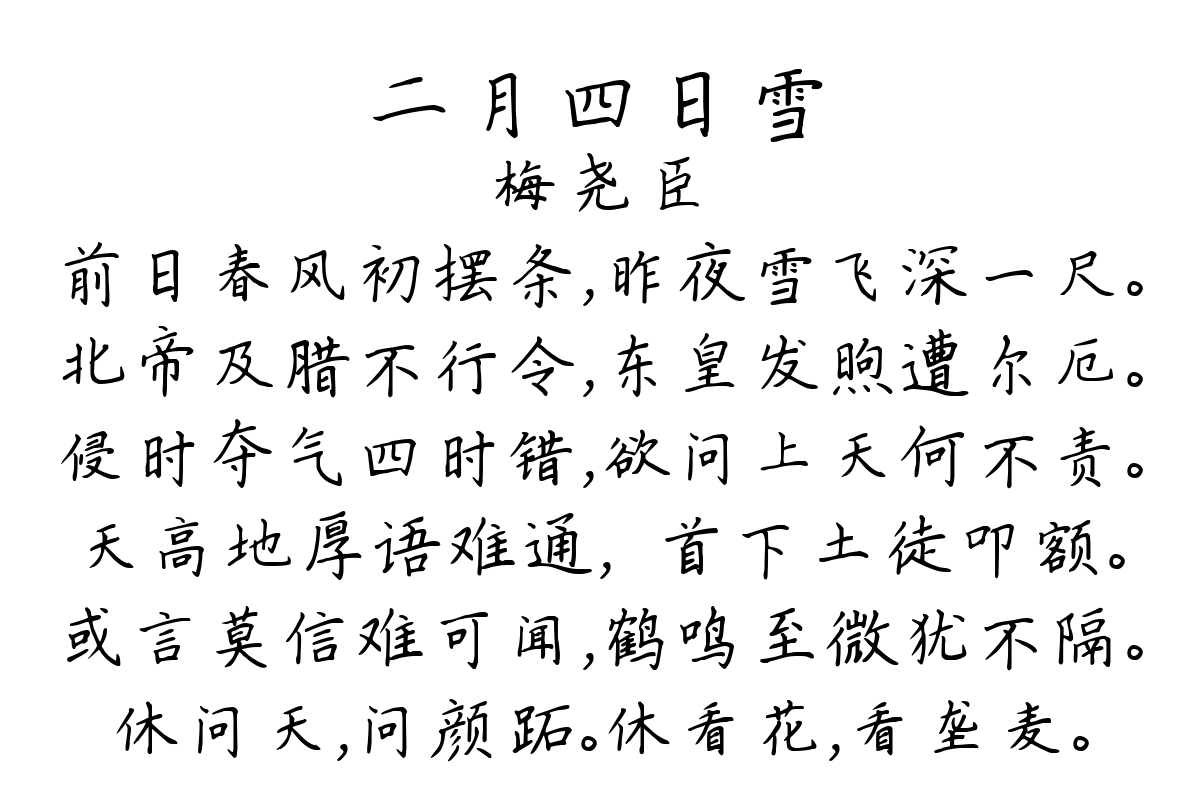 二月四日雪
梅尧臣
前日春风初摆条,昨夜雪飞深一尺。
北帝及腊不行令,东皇发煦遭尔厄。
侵时夺气四时错,欲问上天何不责。
天高地厚语难通，首下土徒叩额。
或言莫信难可闻,鹤鸣至微犹不隔。
休问天,问颜跖。休看花,看垄麦。